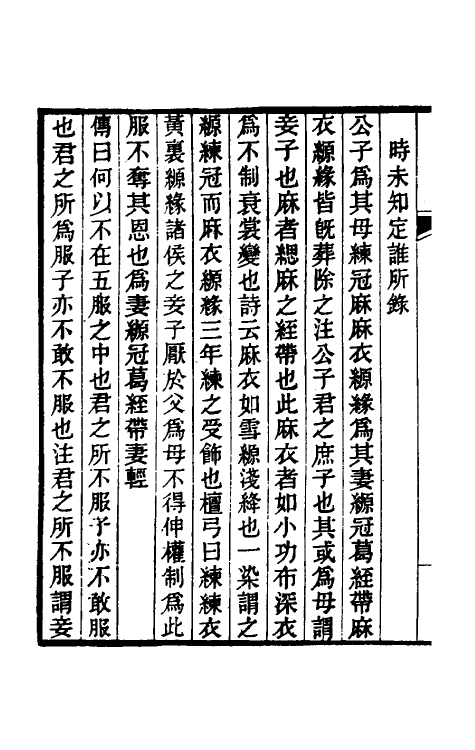 時未知定誰所錄
公子爲其母練冠麻麻衣縓緣爲其妻縓冠葛絰帶麻
衣縓緣皆旣葬除之注公子君之庶子也其或爲母謂
妾子也麻者緦麻之絰帶也此麻衣者如小功布深衣
爲不制衰裳變也詩云麻衣如雪縓淺絳也一染謂之
縓練冠而麻衣縓緣三年練之受飾也檀弓曰練練衣
黃裏縓緣諸侯之妾子厭於父爲母不得伸權制爲此
服不奪其恩也爲妻縓冠葛絰帶妻輕
傳曰何以不在五服之中也君之所不服子亦不敢服
也君之所爲服子亦不敢不服也注君之所不服謂妾